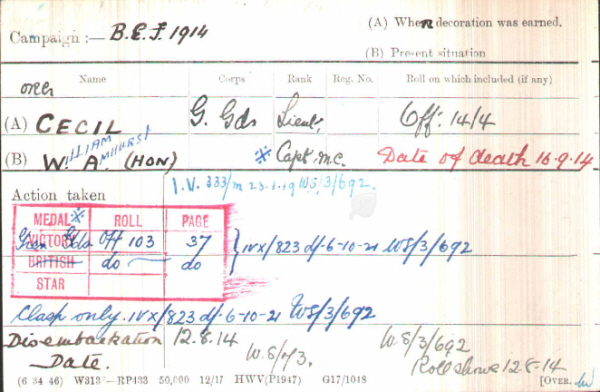 Campaign :— B.E.F. 1914
(A) When decoration was earned.
(B) Present situation
Name Corps Rank Reg. No. Roll on which included (if any)
(A) CECIL G. Gds Lieut, Off. 14/4
(B) W. WILLIAM A. AMHURST (HON) * Capt. M.C. Date of death 16.9.14
Action taken I.V. 333/m 23.1.19 W.S/3/692.
MEDAL * ROLL PAGE
VICTORY Gren Gds Off 103 37 } IVX/823 d/-6-10-21 WS/3/692
BRITISH do do
STAR
Clasp only. IVX/823 d/-6-10-21 WS/3/692
Disembarkation 12.8.14 W.S/3/692
Date. Roll shows 12-8-14
(6 34 46) W313—RP433 50,000 12/17 HWV(P1947) G17/1048 [OVER.